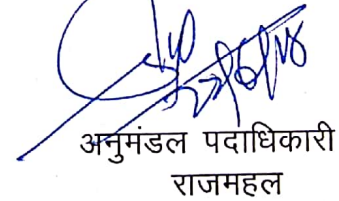 अनुमंडल पदाधिकारी
राजमहल